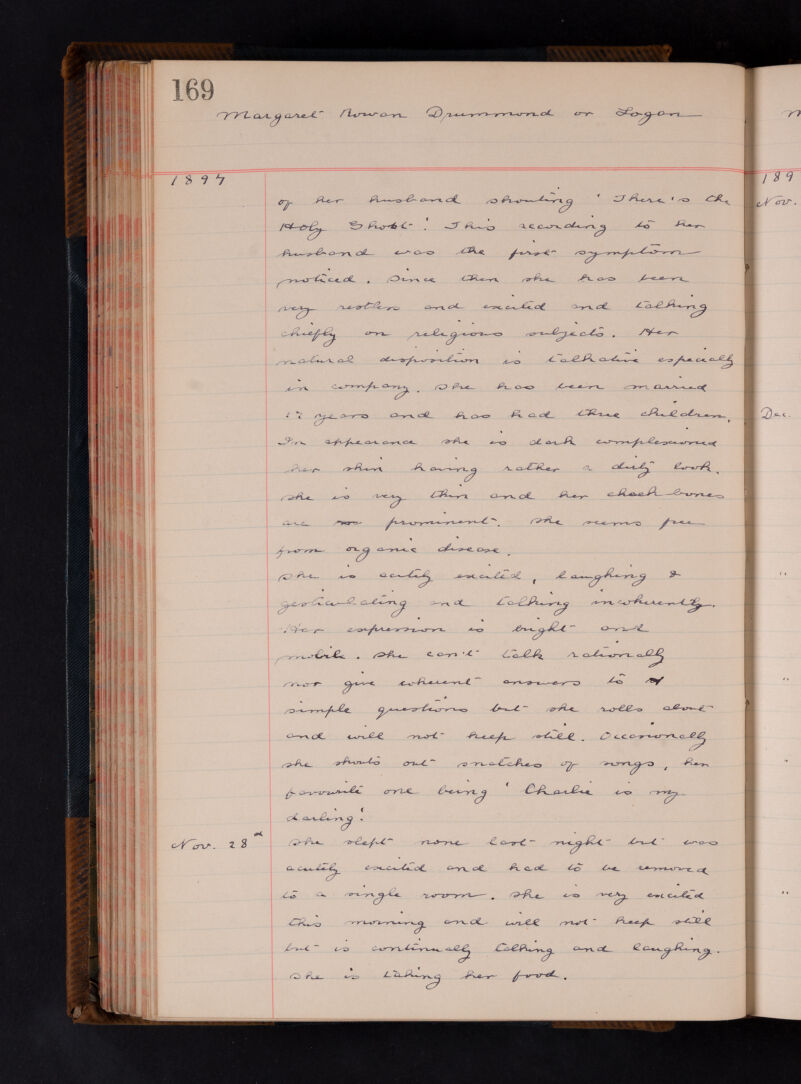 169
Margaret Rowan Drummond or Logan
1897
of her husband shouting 'There's the
Holy Ghost'. This according to her
husband was the first symptom
noticed. Since then she has been
very restless and excited and talking
chiefly on religious subjects. Her
natural disposition is talkative especially
in company. She has been married
years and has had three children.
In appearance she is dark complexioned
her skin having rather a dirty look.
She is very thin and her cheek-bones
are prominent. She seems free
from organic disease.
She is acutely excited, laughing &
gesticulating and talking incoherently.
Her expression is bright and
mobile. She can't talk rationally
nor give coherent answers to
simple questions but she rolls about
and will not keep still. Occasionally
she shouts out snatches of songs, her
favourite one being 'Charlie is my
darling'.
Nov. 28th She slept none last night but was
acutely excited and had to be removed
to a single room. She is very excited
this morning and will not keep still
but is continually talking and laughing.
She is taking her food.
189
Nov.
Dec.
"
"
"